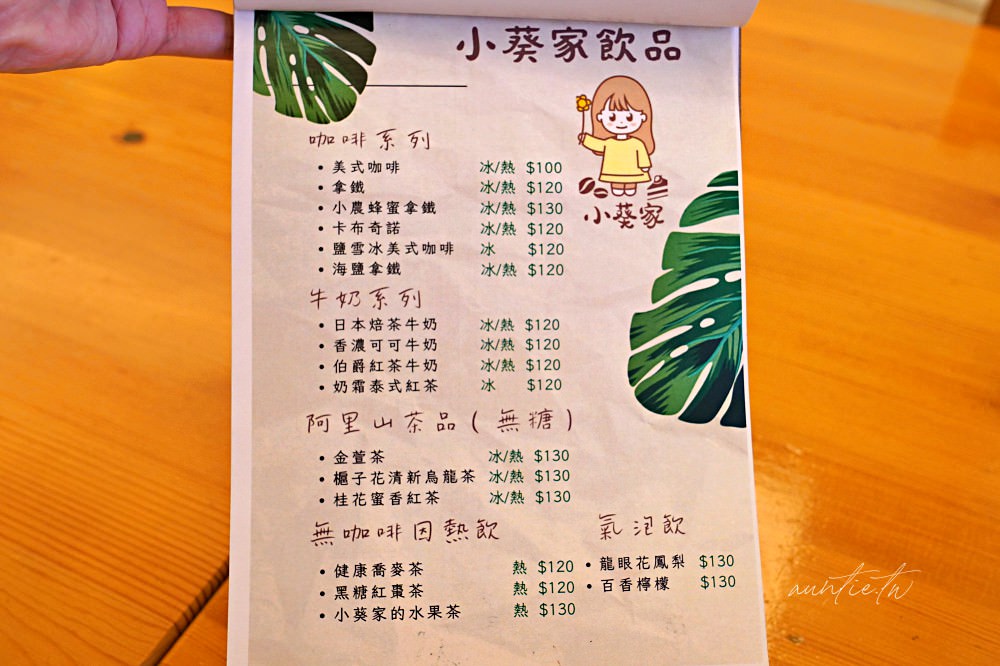 小葵家飲品
小葵家
咖啡系列
• 美式咖啡 冰/熱 $100
• 拿鐵 冰/熱 $120
• 小農蜂蜜拿鐵 冰/熱 $130
• 卡布奇諾 冰/熱 $120
• 鹽雪冰美式咖啡 冰 $120
• 海鹽拿鐵 冰/熱 $120
牛奶系列
• 日本焙茶牛奶 冰/熱 $120
• 香濃可可牛奶 冰/熱 $120
• 伯爵紅茶牛奶 冰/熱 $120
• 奶霜泰式紅茶 冰 $120
阿里山茶品(無糖)
• 金萱茶 冰/熱 $130
• 梔子花清新烏龍茶 冰/熱 $130
• 桂花蜜香紅茶 冰/熱 $130
無咖啡因熱飲
• 健康喬麥茶 熱 $120
• 黑糖紅棗茶 熱 $120
• 小葵家的水果茶 熱 $130
氣泡飲
• 龍眼花鳳梨 $130
• 百香檸檬 $130
auntie.tw